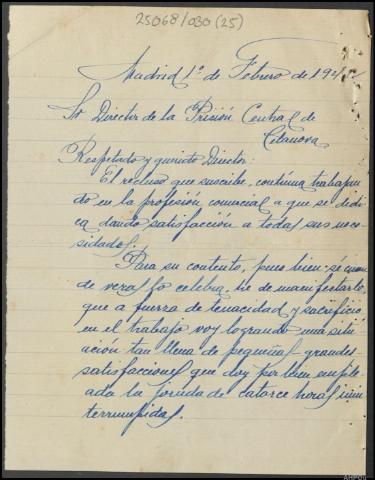 25068/030 (25)
Madrid 1º de Febrero de 194
Sr Director de la Prisión Central de
Celanova
Respetado y querido Director:
El recluso que suscribe, continua trabajan
do en la profesión comercial a que se dedi
ca dando satisfacción a todas sus nece-
sidades.
Para su contento, pues bien sé cuan
de veras lo celebra, he de manifestarle,
que a fuerza de tenacidad y sacrificio
en el trabajo voy logrando una situ
ación tan llena de pequeñas-grandes
satisfacciones que doy por bien emple
ada la jornada de catorce horas inin
terrumpidas.